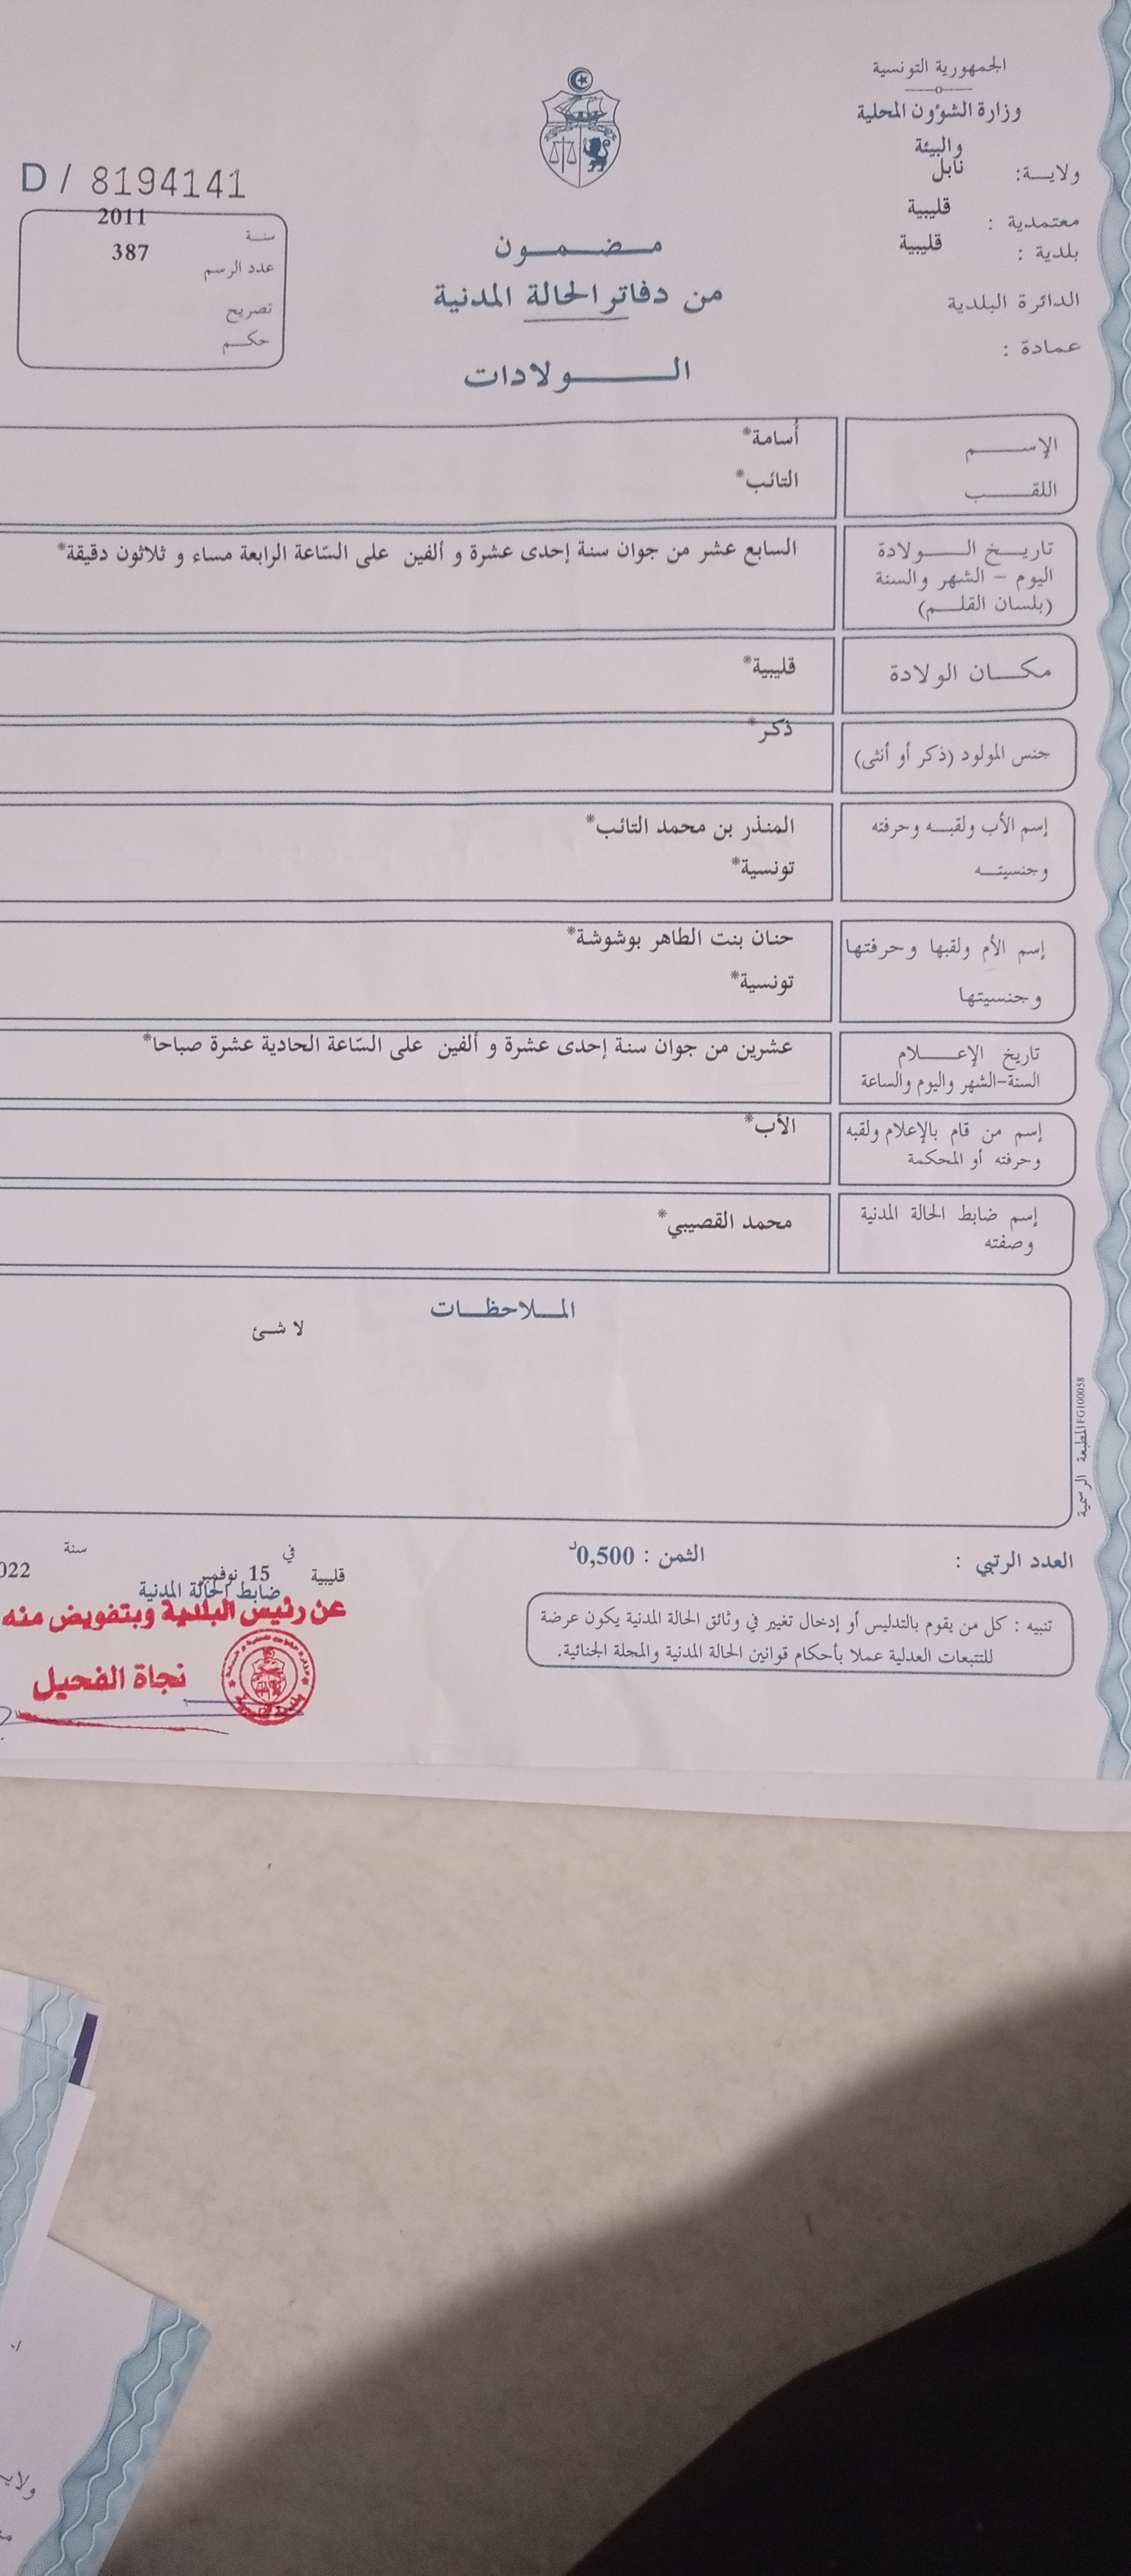 الجمهورية التونسية
وزارة الشؤون المحلية
والبيئة
ولايـــة: نابل
معتمدية : قليبية
بلدية : قليبية
الدائرة البلدية
عمادة :
مـضـمـون
من دفاتر الحالة المدنية
الـولادات
D / 8194141
سنـة 2011
عدد الرسم 387
تصريح
حكـم
الإســـم أسامة*
اللقـــب التائب*
تاريـخ الـــولادة السابع عشر من جوان سنة إحدى عشرة و ألفين على السّاعة الرابعة مساء و ثلاثون دقيقة*
اليوم - الشهر والسنة
(بلسان القلـم)
مكـان الولادة قليبية*
جنس المولود (ذكر أو أنثى) ذكر*
إسم الأب ولقبـه وحرفته المنذر بن محمد التائب*
وجنسيتـه تونسية*
إسم الأم ولقبها وحرفتها حنان بنت الطاهر بوشوشة*
وجنسيتها تونسية*
تاريخ الإعـــلام عشرين من جوان سنة إحدى عشرة و ألفين على السّاعة الحادية عشرة صباحا*
السنة-الشهر واليوم والساعة
إسم من قام بالإعلام ولقبه الأب*
وحرفته أو المحكمة
إسم ضابط الحالة المدنية محمد القصيبي*
وصفته
المـلاحظـات
لا شئ
المطبعة الرسمية FG100058
العدد الرتبي :
الثمن : 0,500د
قليبية في 15 نوفمبر سنة 022
ضابط الحالة المدنية
عن رئيس البلدية وبتفويض منه
نجاة الفحيل
تنبيه : كل من يقوم بالتدليس أو إدخال تغيير في وثائق الحالة المدنية يكون عرضة
للتتبعات العدلية عملا بأحكام قوانين الحالة المدنية والمجلة الجنائية.